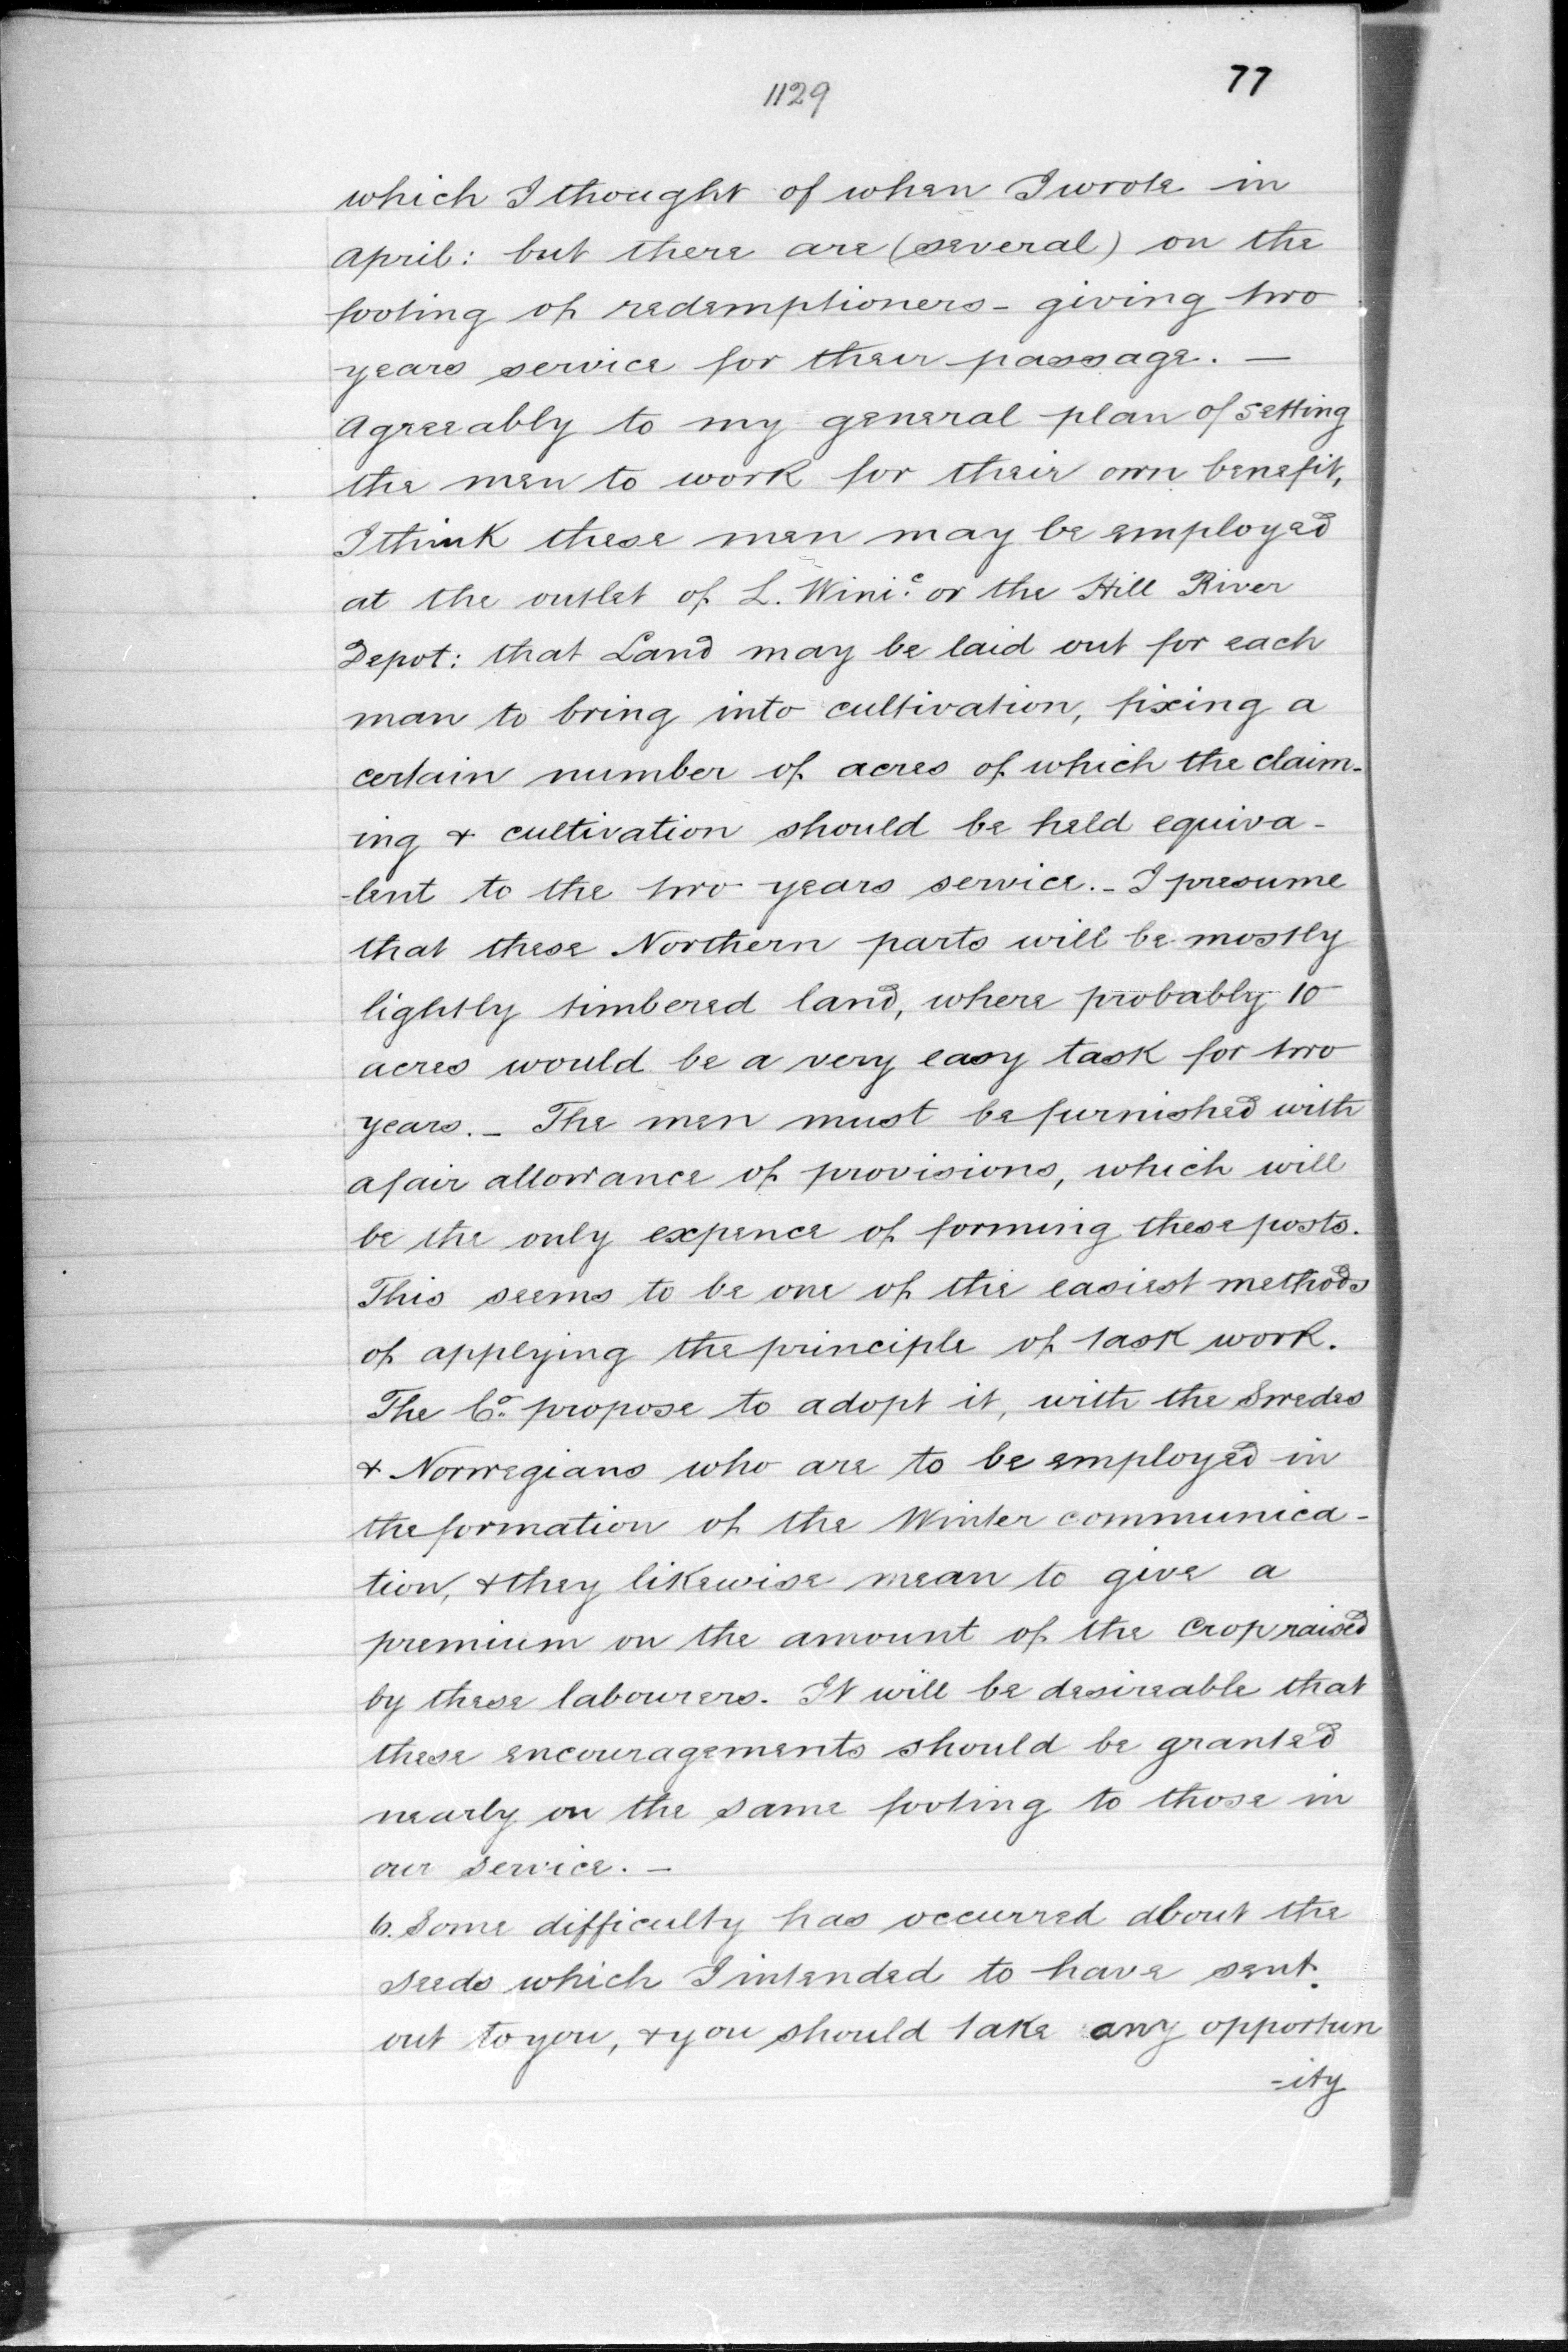 1129
77
which I thought of when I wrote in
April: but there are (several) on the
footing of redemptioners - giving two
years service for their passage. —
Agreeably to my general plan of setting
the men to work for their own benefit,
I think these men may be employed
at the outlet of L. Wini.c or the Hill River
Depot: that Land may be laid out for each
man to bring into cultivation, fixing a
certain number of acres of which the claim-
ing & cultivation should be held equiva-
-lent to the two years service. - I presume
that these Northern parts will be mostly
lightly timbered land, where probably 10
acres would be a very easy task for two
years. - The men must be furnished with
a fair allowance of provisions, which will
be the only expence of forming these posts.
This seems to be one of the easiest methods
of applying the principle of task work.
The Co. propose to adopt it, with the Swedes
& Norwegians who are to be employed in
the formation of the Winter communica-
tion, & they likewise mean to give a
premium on the amount of the Crop raised
by these labourers. It will be desireable that
these encouragements should be granted
nearly on the same footing to those in
our service. —
6. Some difficulty has occurred about the
seeds which I intended to have sent
out to you, & you should take any opportun
=ity